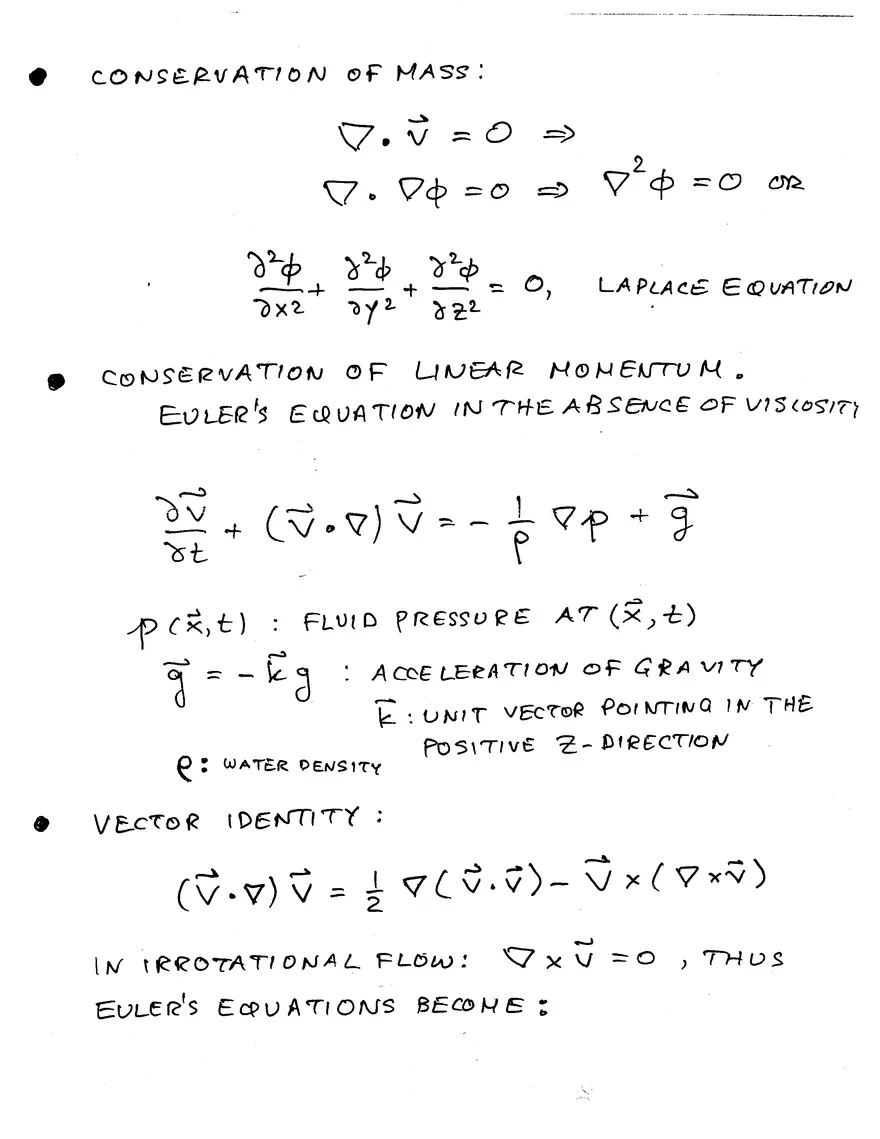 • CONSERVATION OF MASS:
∇·v⃗ = 0 ⇒
∇·∇φ = 0 ⇒ ∇²φ = 0 OR
∂²φ/∂x² + ∂²φ/∂y² + ∂²φ/∂z² = 0, LAPLACE EQUATION
• CONSERVATION OF LINEAR MOMENTUM.
EULER'S EQUATION IN THE ABSENCE OF VISCOSITY
∂v⃗/∂t + (v⃗·∇)v⃗ = - 1/ρ ∇p + g⃗
p(x⃗,t) : FLUID PRESSURE AT (x⃗,t)
g⃗ = -k⃗g : ACCELERATION OF GRAVITY
k⃗ : UNIT VECTOR POINTING IN THE
POSITIVE Z-DIRECTION
ρ: WATER DENSITY
• VECTOR IDENTITY :
(v⃗·∇)v⃗ = 1/2 ∇(v⃗·v⃗) - v⃗×(∇×v⃗)
IN IRROTATIONAL FLOW: ∇×v⃗ = 0 , THUS
EULER'S EQUATIONS BECOME :